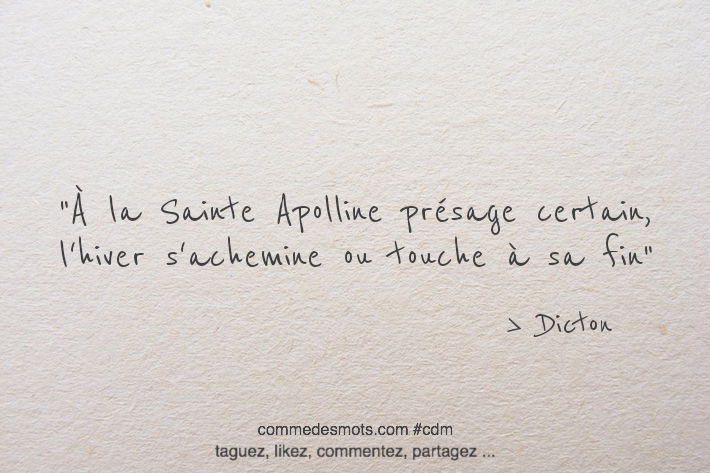 "À la Sainte Apolline présage certain,
l'hiver s'achemine ou touche à sa fin"
> Dicton
commedesmots.com #cdm
taguez, likez, commentez, partagez ...